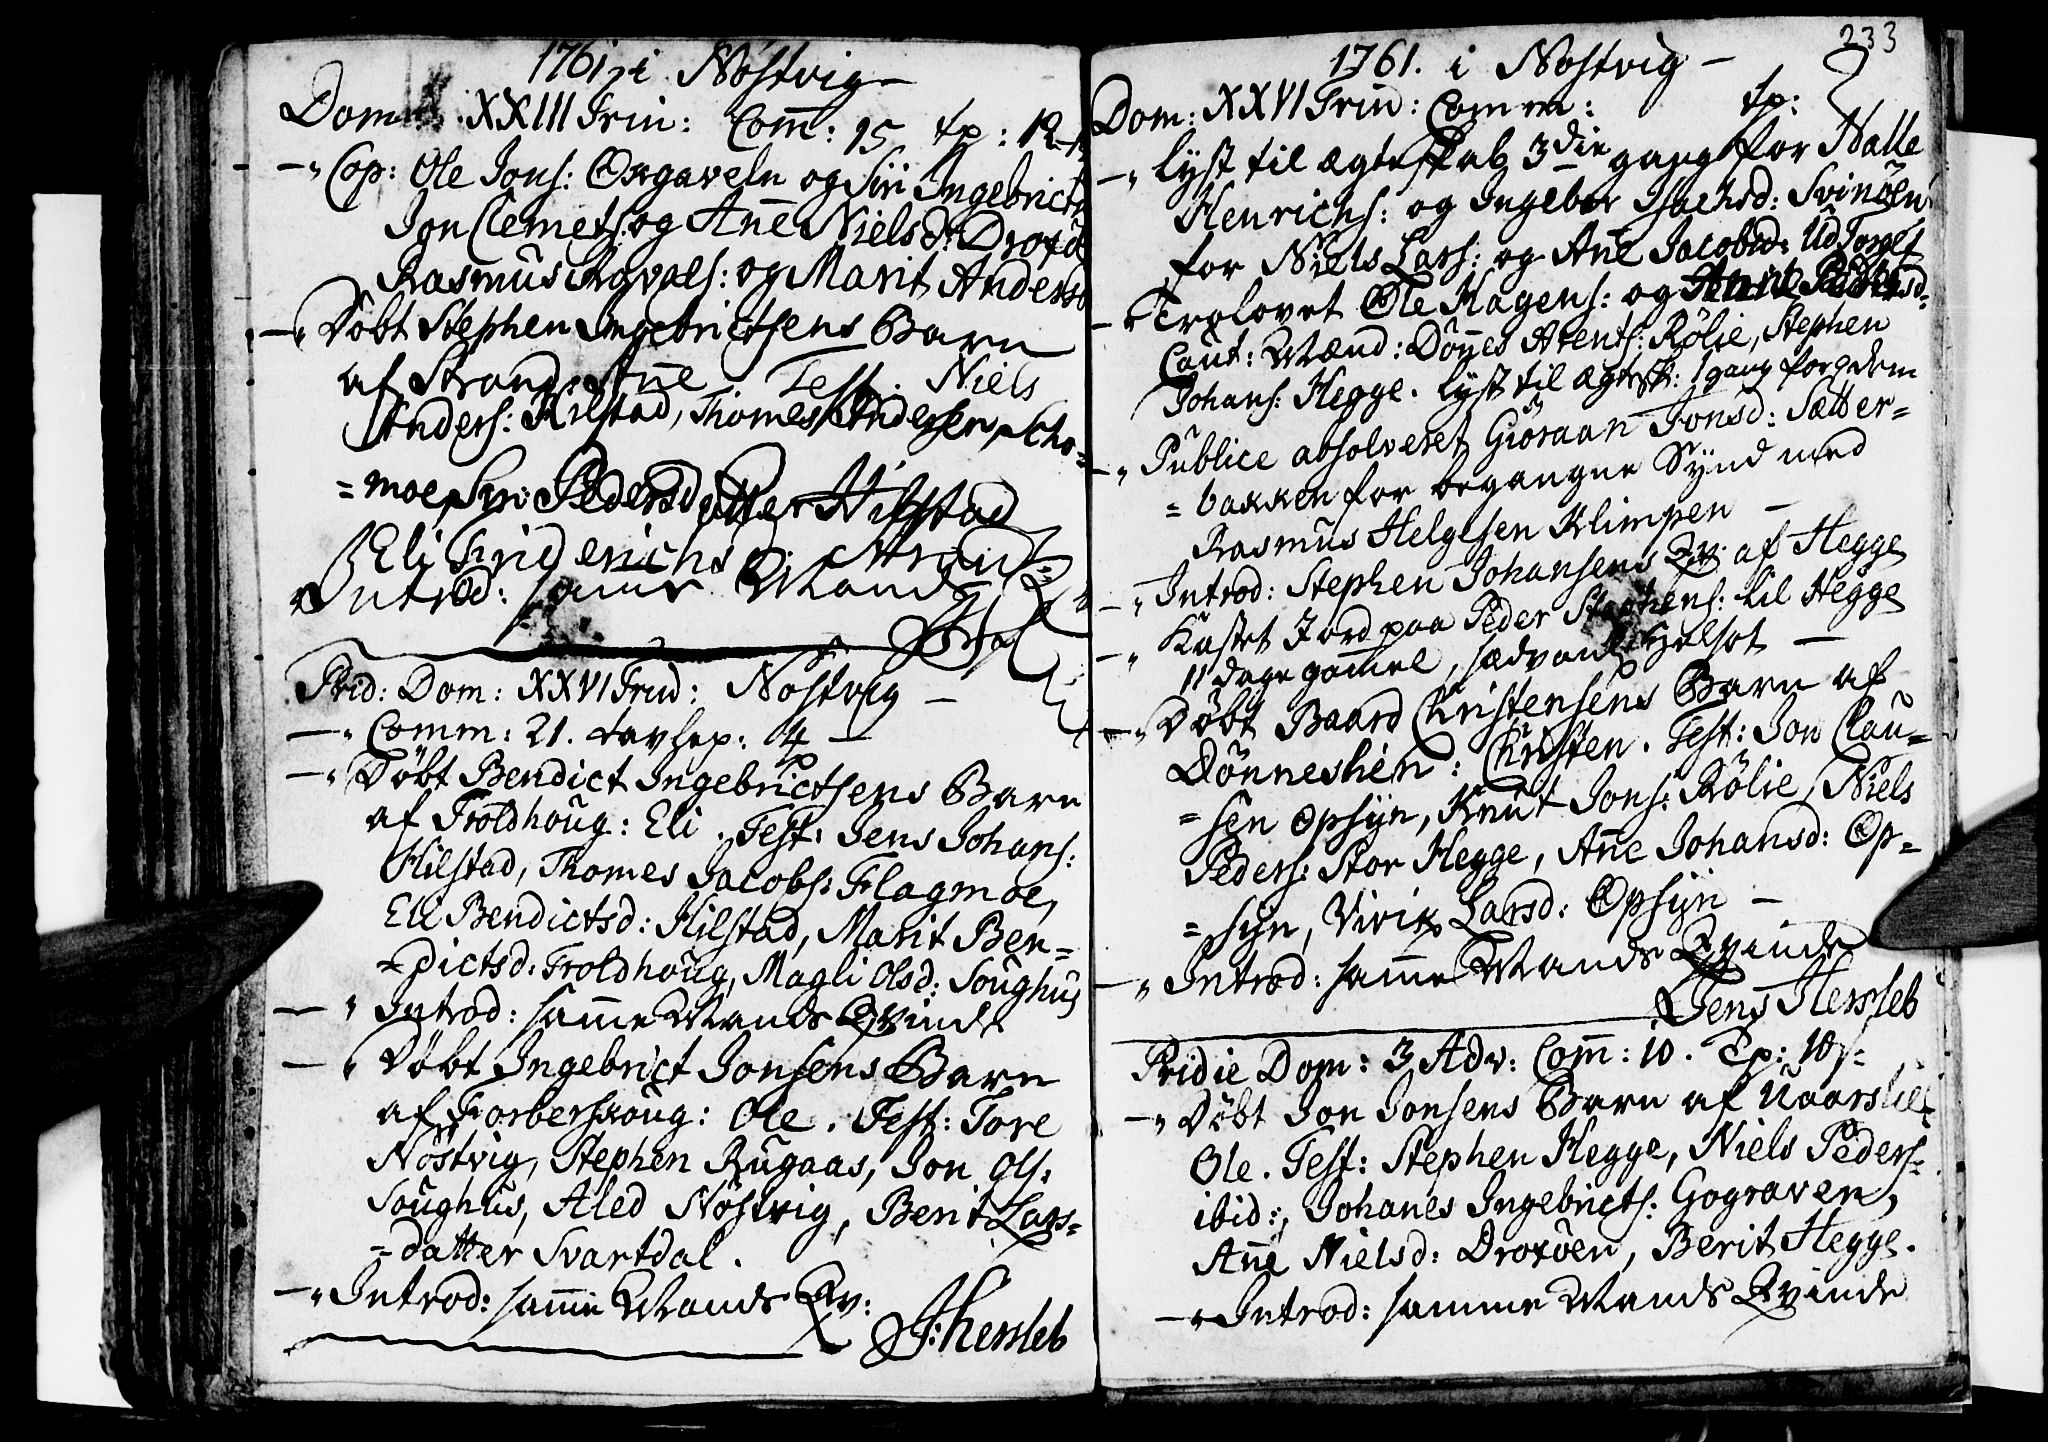 1761, i Nøstvig
Dom: XXIII Trin: Com̄: 15 tp: 12
Cop: Ole Jons: Oxgaveln og Siri Ingebrictsd
Jon Clemets: og An̄e Nielsd: Droxø
Rasmus Rovals: og Marit Andersd
Døbt Stephen Ingebrictsens Barn
af Strand: An̄e. Test: Niels
Anders: Hilstad, Thomes Andersen, Scho=
=moe, Siri Pedersdatter Hilstad
Eli Friderichsd: Strand
Introd: sam̄e Mands
Prid: Dom: XXVI Trin: Nøstvig –
Comm: 21. tavsep: 4 –
Døbt Bendict Ingebrictsens Barn
af Troldhoug: Eli. Test: Jens Johans:
Hilstad, Thomes Jacobs: Flagmoe,
Eli Bendictsd: Hilstad, Marit Ben=
=dictsd: Troldhoug, Magli Olsd: Soughus
Introd: sam̄e Mands Qvinde
Døbt Ingebrict Jonsens Barn
af Forberskoug: Ole. Test: Tore
Nøstvig, Stephen Rugaas, Jon Ols:
Soughus, Aled Nøstvig, Berit Lars=
=datter Svartdal.
Introd: sam̄e Mands Qv:
J: Hersleb
233
1761. i Nøstvig –
Dom: XXVI Trin: Comm: tp:
Lyst til ægteskab 3die gang for Halle
Henrichs: og Ingebor Isachsd: Svinøen
for Niels Lars: og An̄e Jacobsd: Udtorget
Trolovet Ole Hagens: og Anne Pedersd:
Caut: Mænd: Dønnes Arents: Rølie, Stephen
Johans: Hegge. Lyst til ægtesk: 1 gang for dem
Publice absolveret Giøraan Jonsd: Sætter=
=bakken for begangne Synd med
Rasmus Helgesen Klimpen –
Introd: Stephen Johansens Qv: af Hegge
Kastet Jord paa Peder Stephens: lil Hegge
11 dage gam̄el, sædvanl Helsot –
Døbt Baard Christensens Barn af
Dønneshen: Christen. Test: Jon Clau=
=sen Opsyn, Knut Jons: Rølie, Niels
Peders: Stor Hegge, An̄e Johansd: Op=
=syn, Vivix Larsd: Opsyn –
Introd: sam̄e Mands Qvinde
Jens Hersleb
Pridie Dom: 3 Adv: Com̄: 10. Tp: 10,
Døbt Jon Jonsens Barn af Uaarsliet
Ole. Test: Stephen Hegge, Niels Peders:
ibid:, Johan̄es Ingebricts: Gograven,
An̄e Nielsd: Droxøen, Berit Hegge.
Introd: samme Mands Qvinde